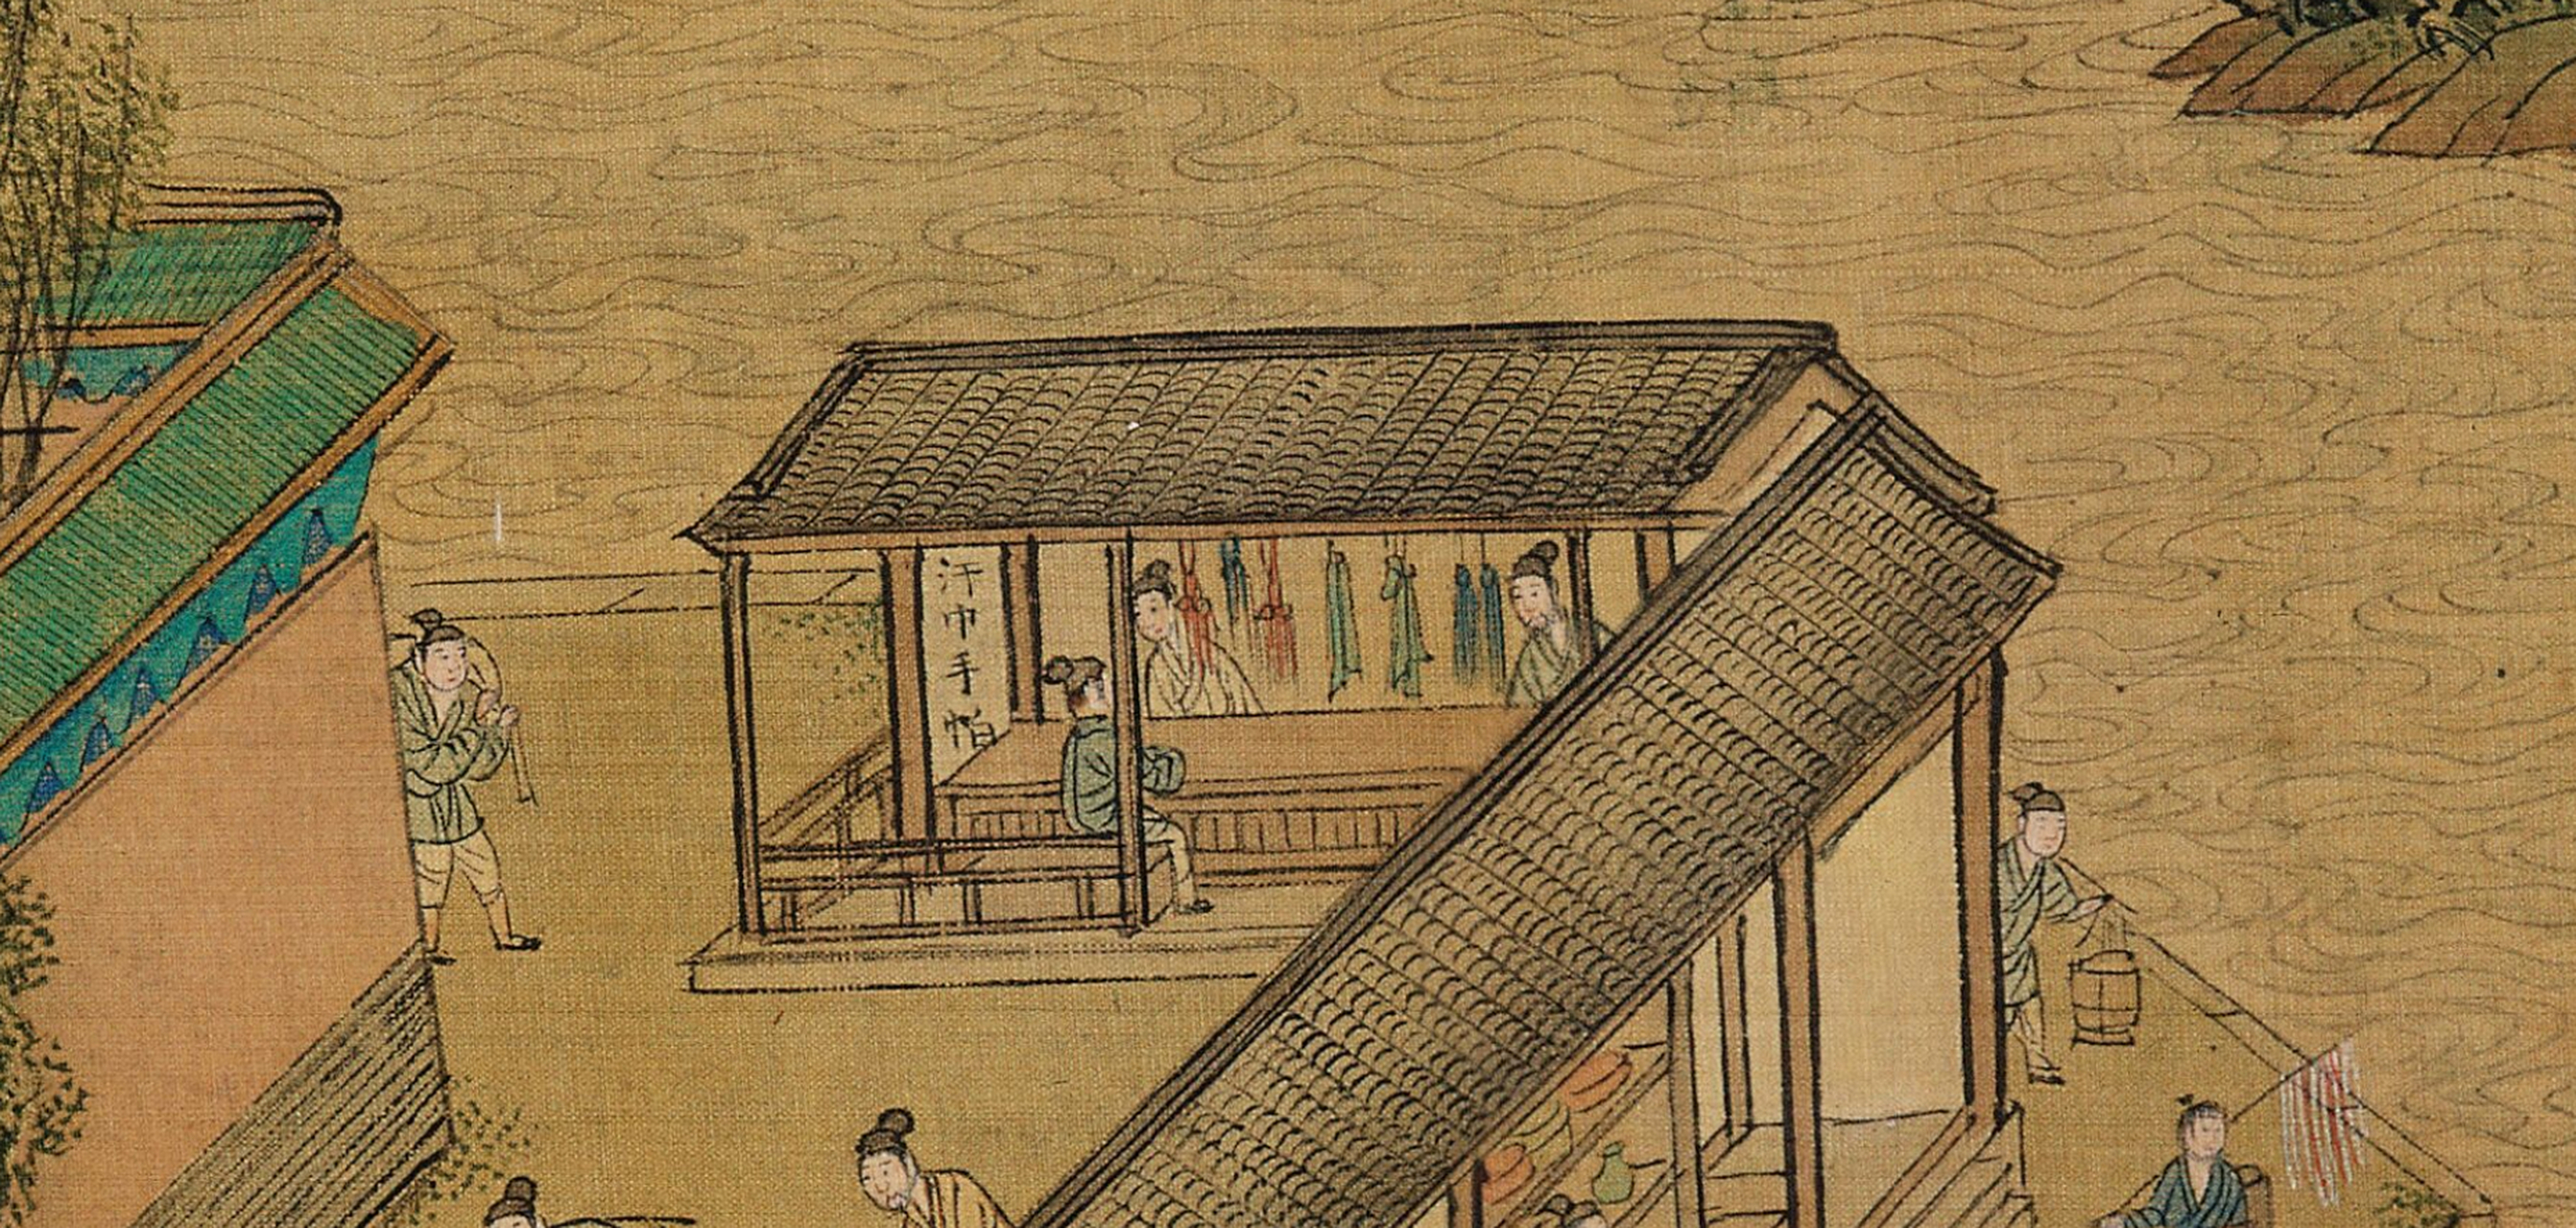 汗巾手帕